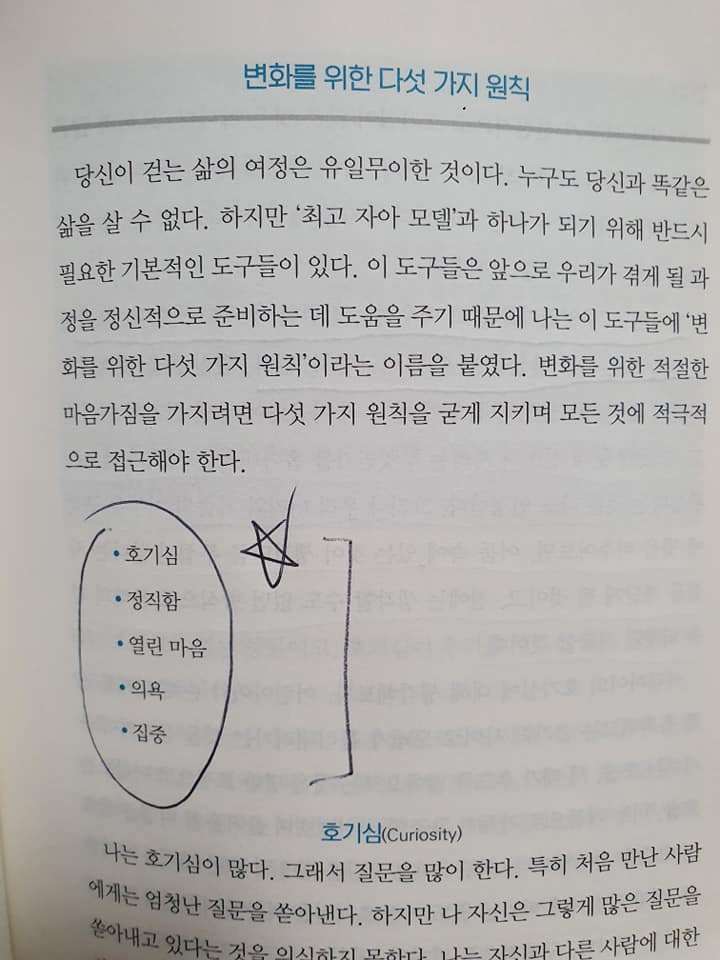 변화를 위한 다섯 가지 원칙
당신이 걷는 삶의 여정은 유일무이한 것이다. 누구도 당신과 똑같은
삶을 살 수 없다. 하지만 '최고 자아 모델'과 하나가 되기 위해 반드시
필요한 기본적인 도구들이 있다. 이 도구들은 앞으로 우리가 겪게 될 과
정을 정신적으로 준비하는 데 도움을 주기 때문에 나는 이 도구들에 '변
화를 위한 다섯 가지 원칙'이라는 이름을 붙였다. 변화를 위한 적절한
마음가짐을 가지려면 다섯 가지 원칙을 굳게 지키며 모든 것에 적극적
으로 접근해야 한다.
• 호기심
• 정직함
• 열린 마음
• 의욕
• 집중
호기심(Curiosity)
나는 호기심이 많다. 그래서 질문을 많이 한다. 특히 처음 만난 사람
에게는 엄청난 질문을 쏟아낸다. 하지만 나 자신은 그렇게 많은 질문을
쏟아내고 있다는 것을 의식하지 못한다. 나는 자신과 다른 사람에 대한